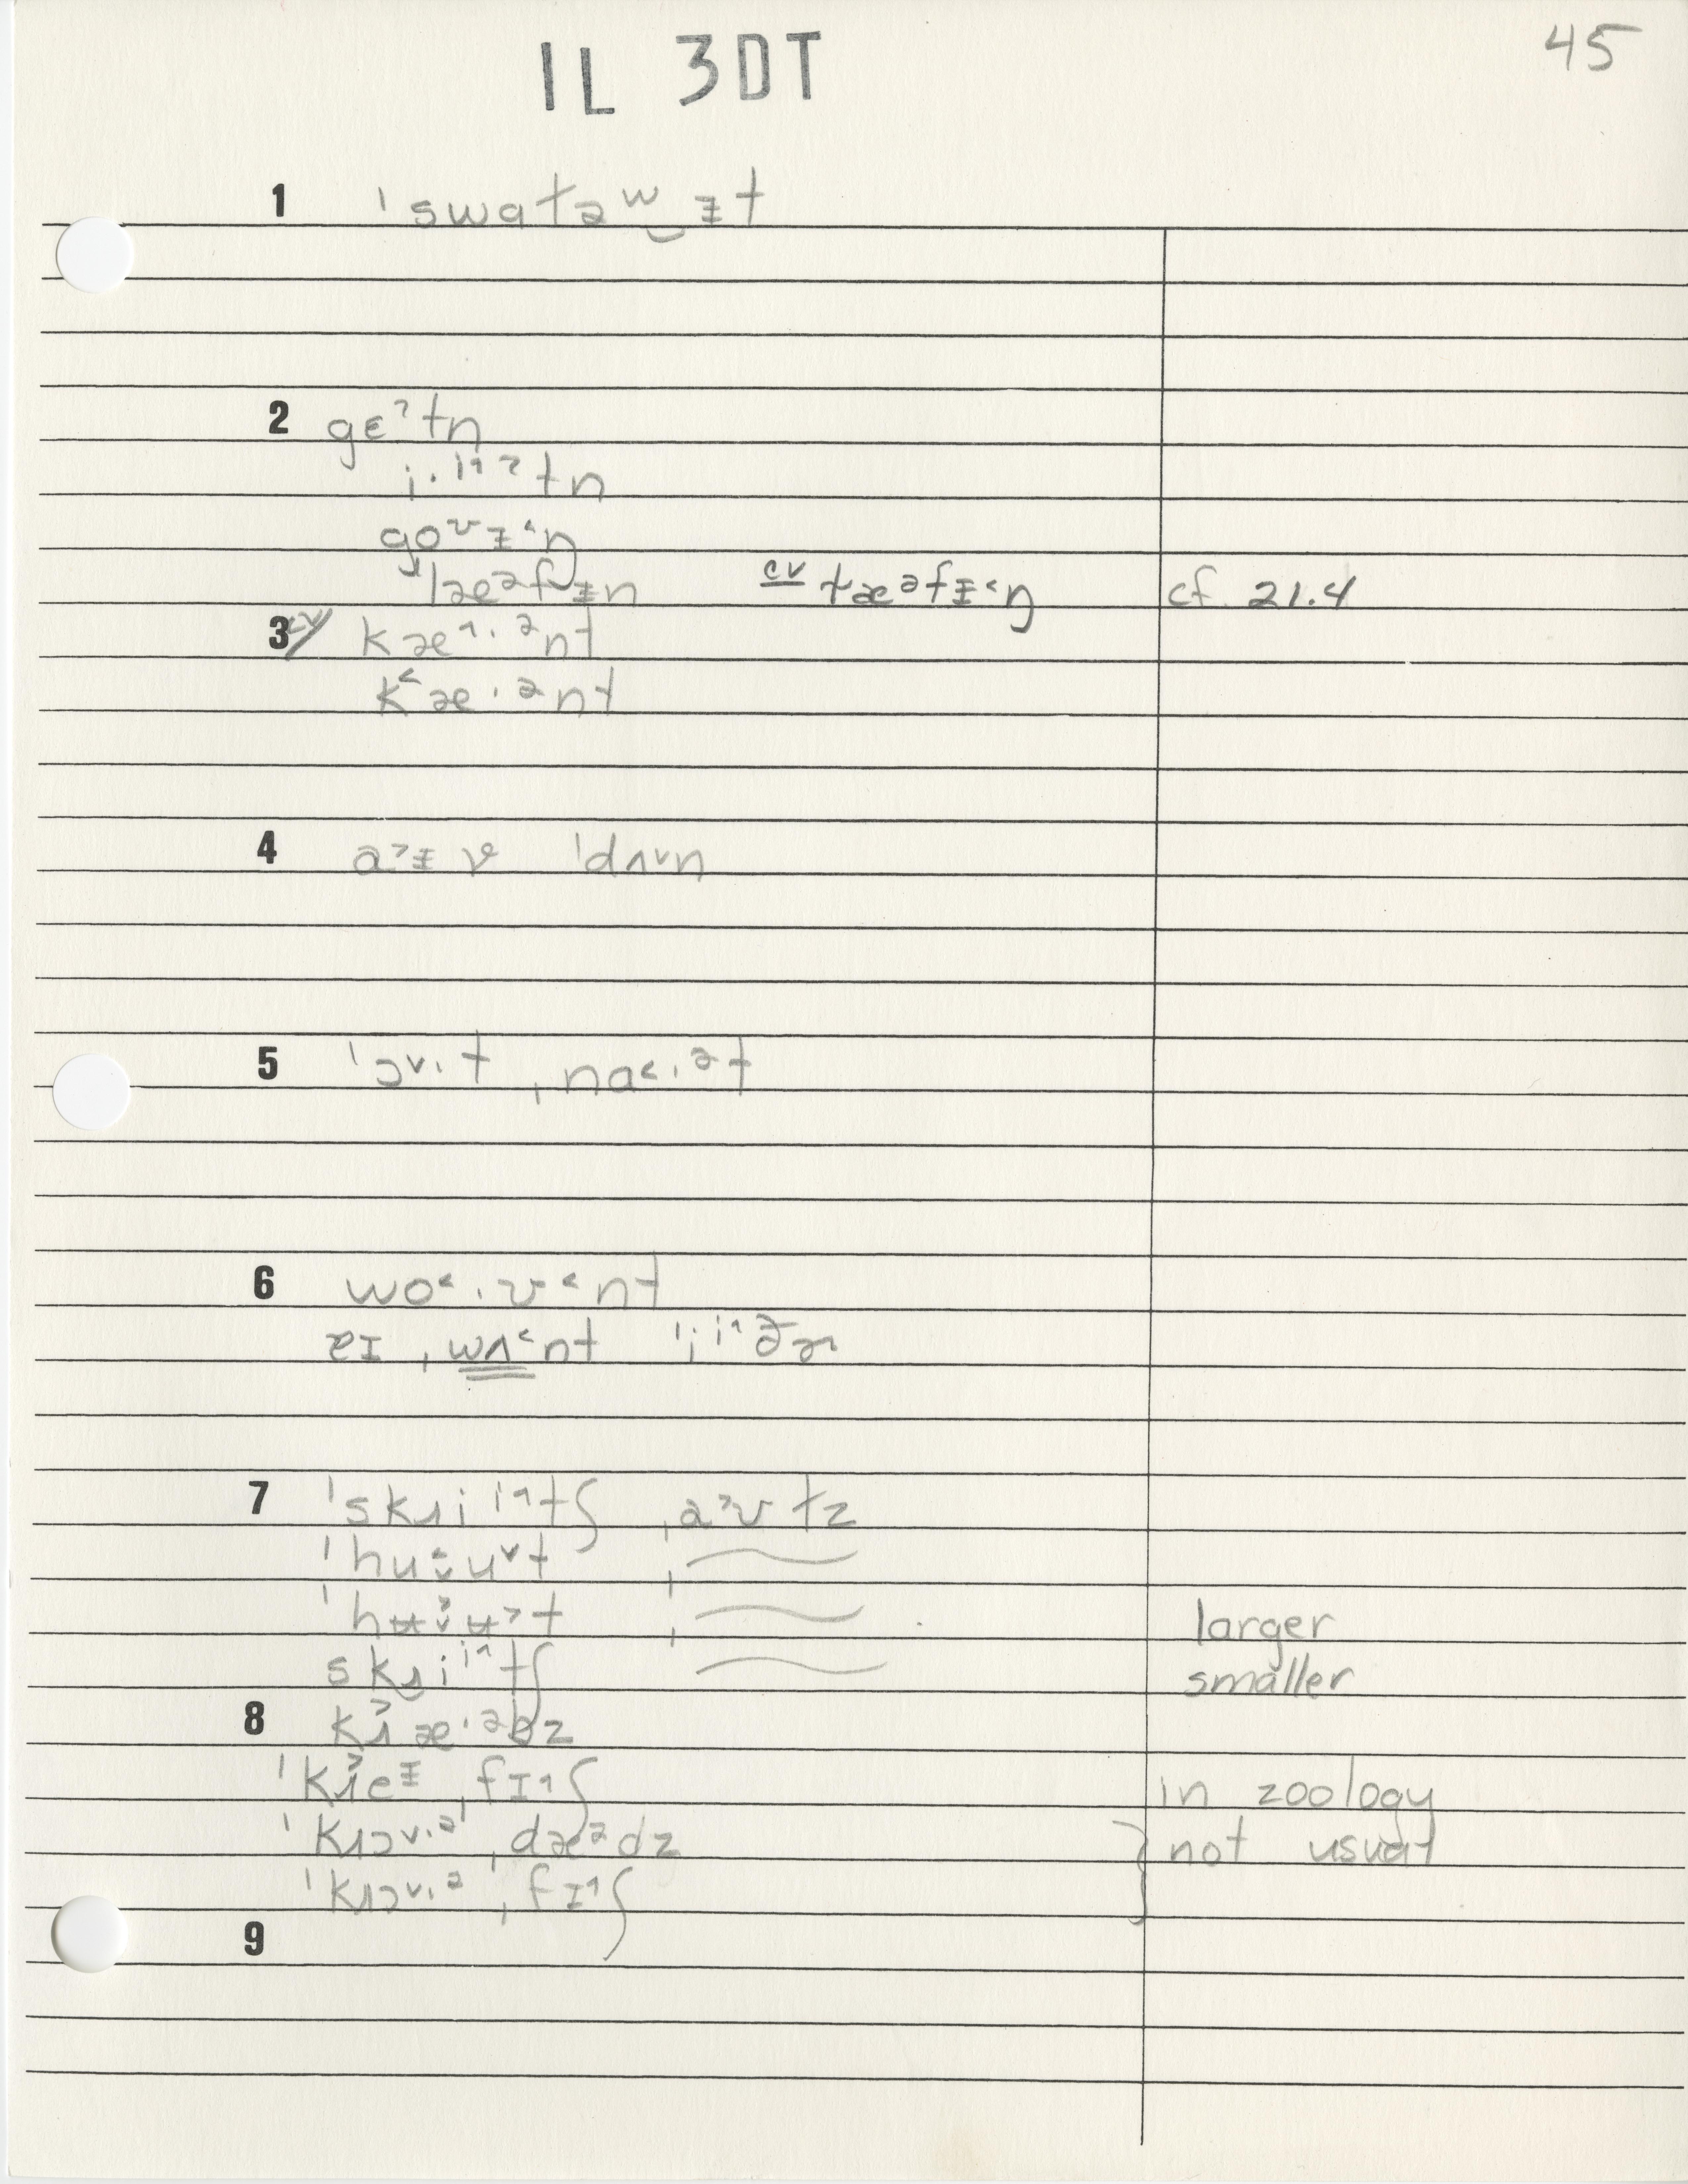 IL 3DT 45
1 ˈswɑtəʷ‿ɪ̵t
2 gɛˀtn
i·ⁱ˄ˀtn
goʊɪ̵˂ŋ
ˈlæᵊfɪ̵n cv tæᵊfɪ̵˂ŋ cf. 21.4
3 cv kæ˄·ᵊnt
k˂æ·ᵊnt
4 a˃ɪ̵ ɐ ˈdʌ˅n
5 ˈɔ˅·t ˌnɑ˂·ᵊt
6 wo˂·ʊ˂nt
ɪz ˌwʌ˂nt ˈiⁱ˄ðɚ
7 ˈskɹiⁱ˄tʃ ˌa˃ʊtz
ˈhu·u˅t ˌ
ˈhʉ·ʉ˃t ˌ larger
skɹiⁱ˄tʃ smaller
8 kɹæ·ᵊbz
ˈkɹeɪ̵ ˌfɪ˄ʃ in zoology
ˈkɹɔ˅·ᵊ ˌdæᵊdz } not usual
ˈkɹɔ˅·ᵊ ˌfɪ˄ʃ
9